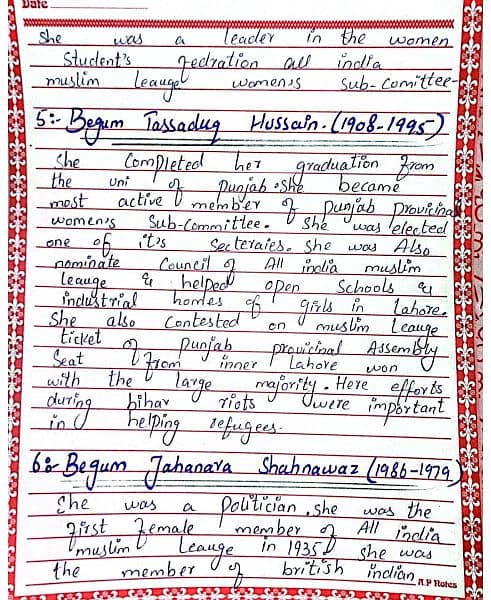 Date
She was a leader in the women
Student's fedration all india
muslim leauge women's sub-comittee-
5:- Begum Tassaduq Hussain. (1908-1995)
She Completed her graduation from
the uni of Punjab. She became
most active member of Punjab Provicinal
women's Sub-Committee. She was elected
one of it's Secteraies. She was Also
nominate Council of All india muslim
leauge & helped open Schools &
industrial homes of girls in Lahore.
She also Contested on muslim leauge
ticket of Punjab provicinal Assembly
Seat from inner Lahore won
with the large majority. Here efforts
during bihar riots were important
in helping refugees.
6:- Begum Jahanara Shahnawaz (1986-1979)
She was a Politician. she was the
first female member of All india
muslim Leauge in 1935. she was
the member of british indian
A.P Notes